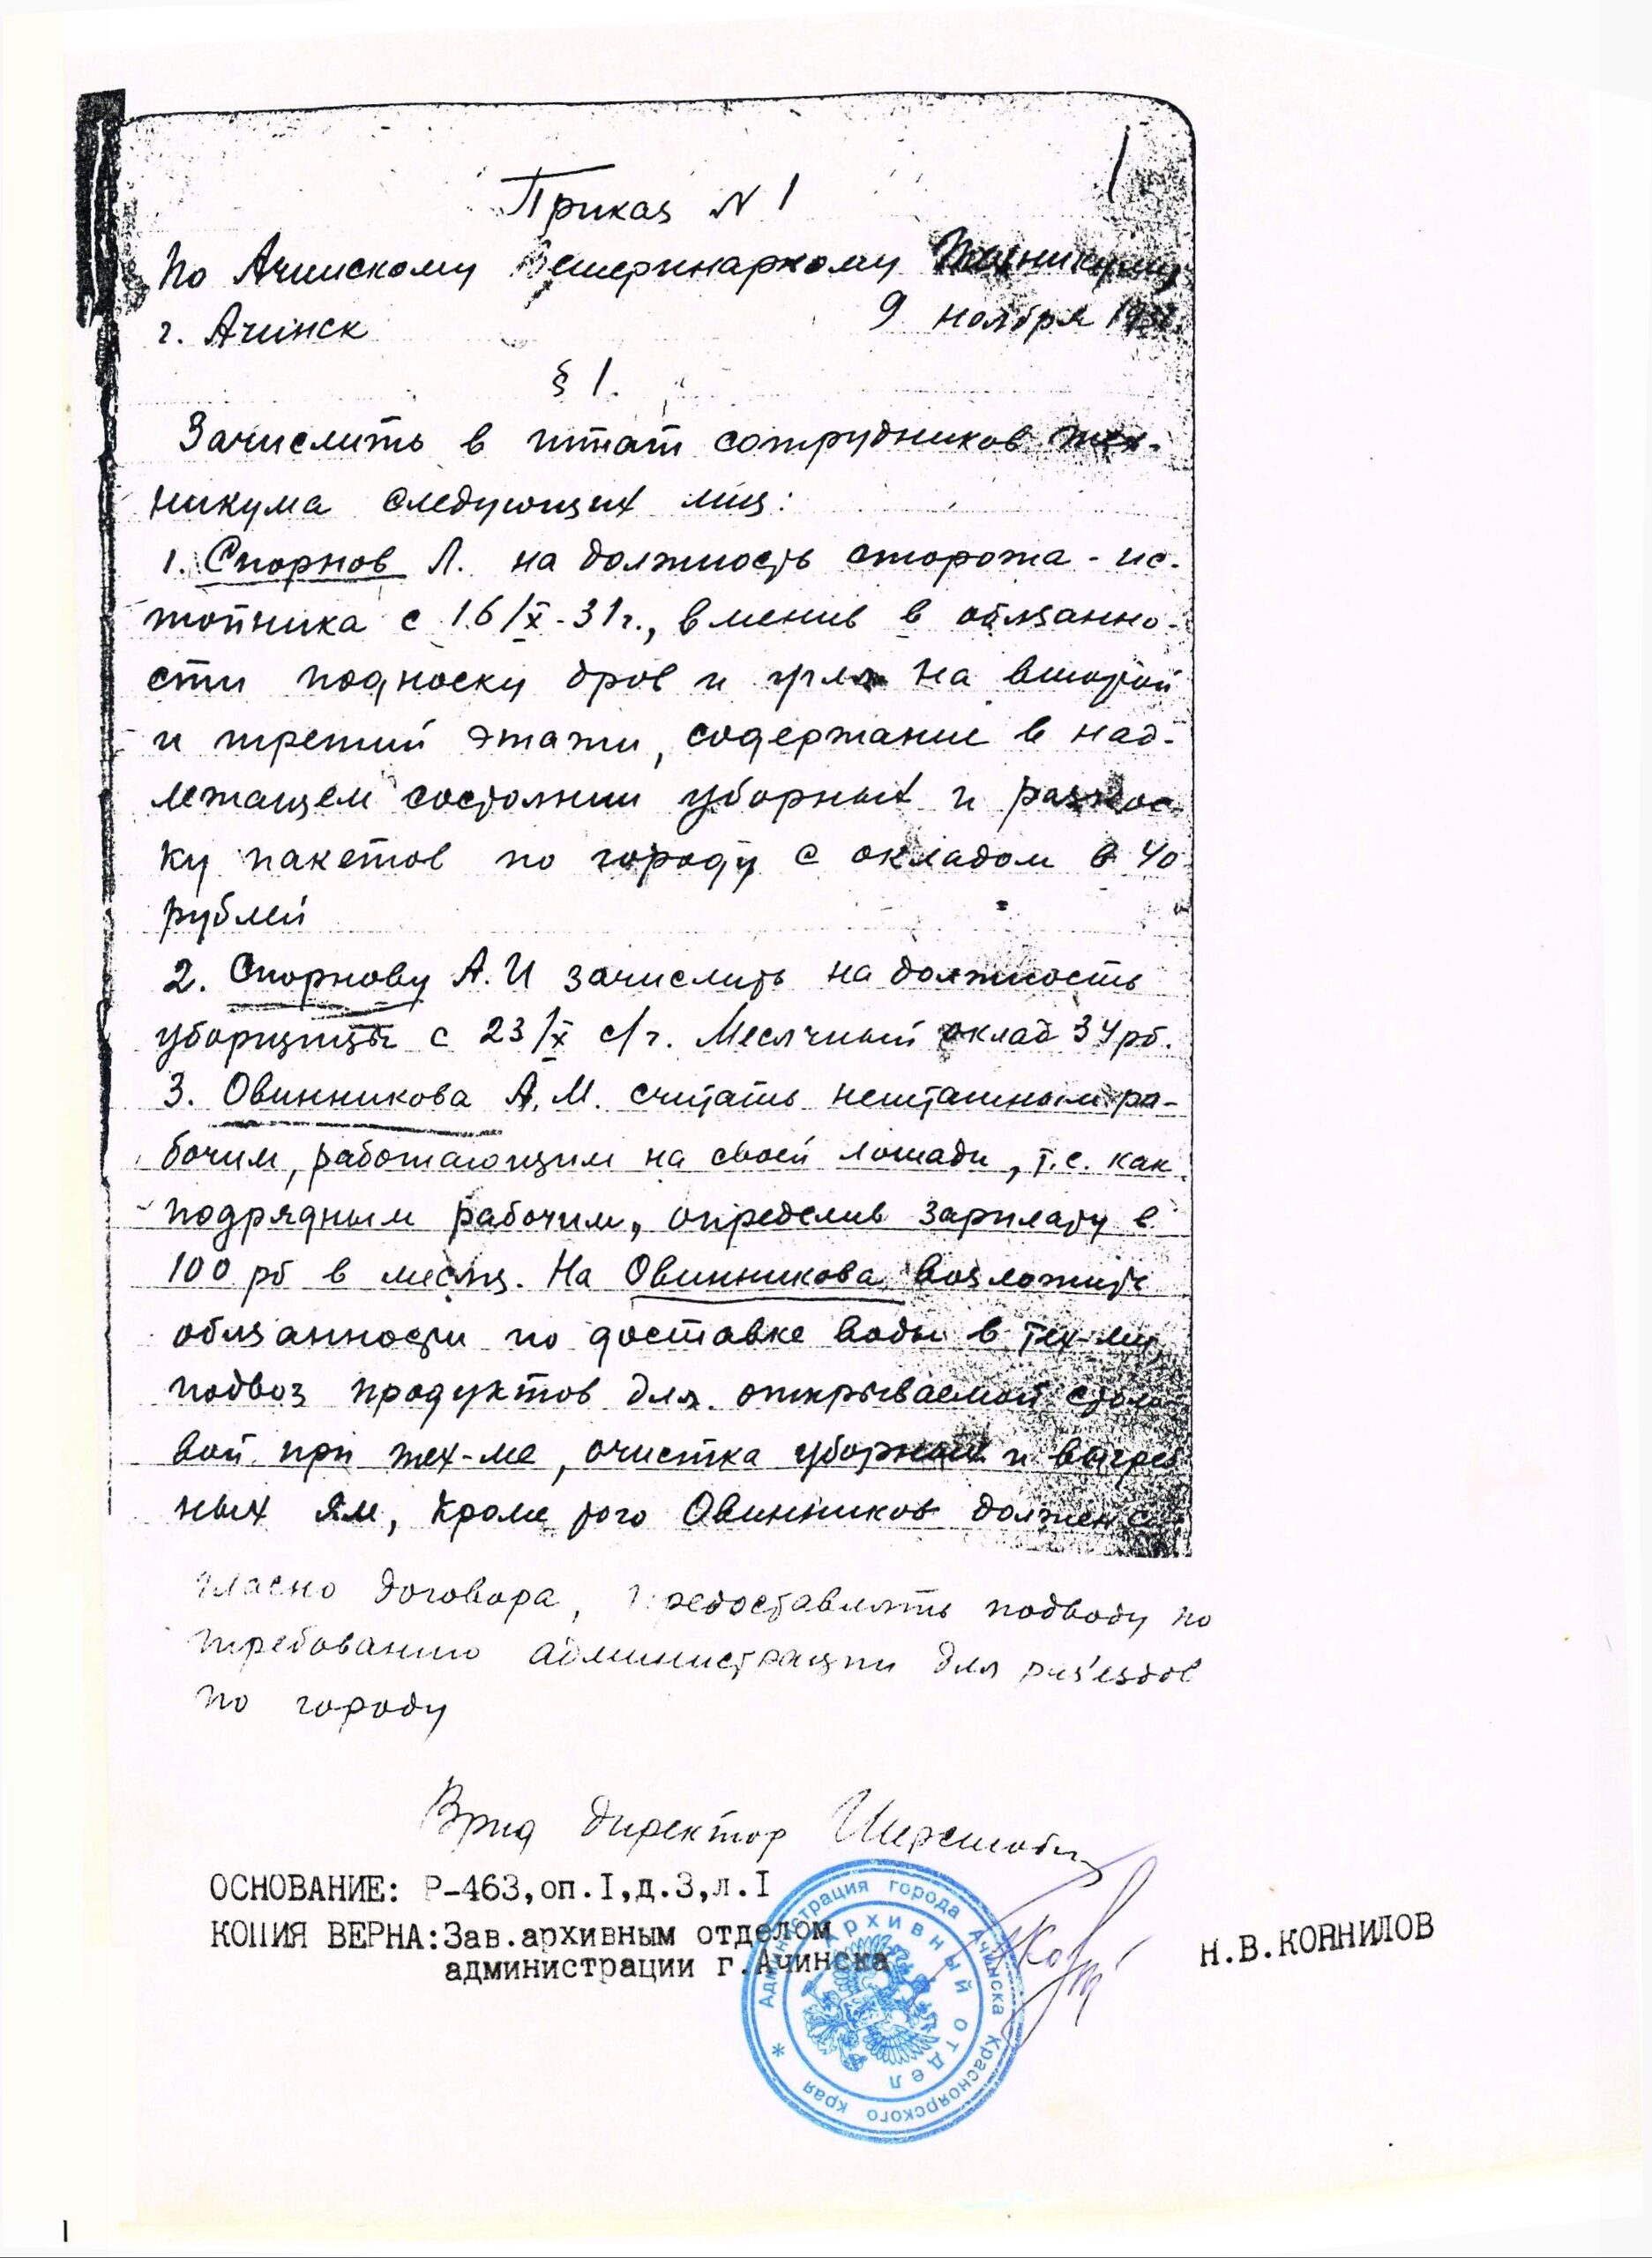 1
Приказ N 1
По Ачинскому Ветеринарному Техникуму
г. Ачинск 9 ноября 1931.
§ 1.
Зачислить в штат сотрудников тех-
никума следующих лиц:
1. Спорнов Л. на должность сторожа - ис-
топника с 16/X - 31 г., вменив в обязанно-
сти подноску дров и угля на второй
и третий этажи, содержание в над-
лежащем состоянии уборных и разнос-
ку пакетов по городу с окладом в 40
рублей
2. Спорнову А.И зачислить на должность
уборщицы с 23/X с/г. Месячный оклад 34 рб.
3. Овинникова А.М. считать нештатным ра-
бочим, работающим на своей лошади, т.е. как
подрядным рабочим, определив зарплату в
100 рб в месяц. На Овинникова возложить
обязанности по доставке воды в тех-м,
подвоз продуктов для открываемой столо-
вой при тех-ме, очистка уборных и выгреб
ных ям, кроме того Овинников должен со-
гласно договора, предоставлять подводу по
требованию администрации для раз'ездов
по городу
Врид директор
ОСНОВАНИЕ: Р-463,оп.I,д.3,л.I
КОПИЯ ВЕРНА:Зав.архивным отделом
администрации г.Ачинска
Н.В.КОРНИЛОВ
Администрация города Ачинска Красноярского края *
Архивный отдел
1